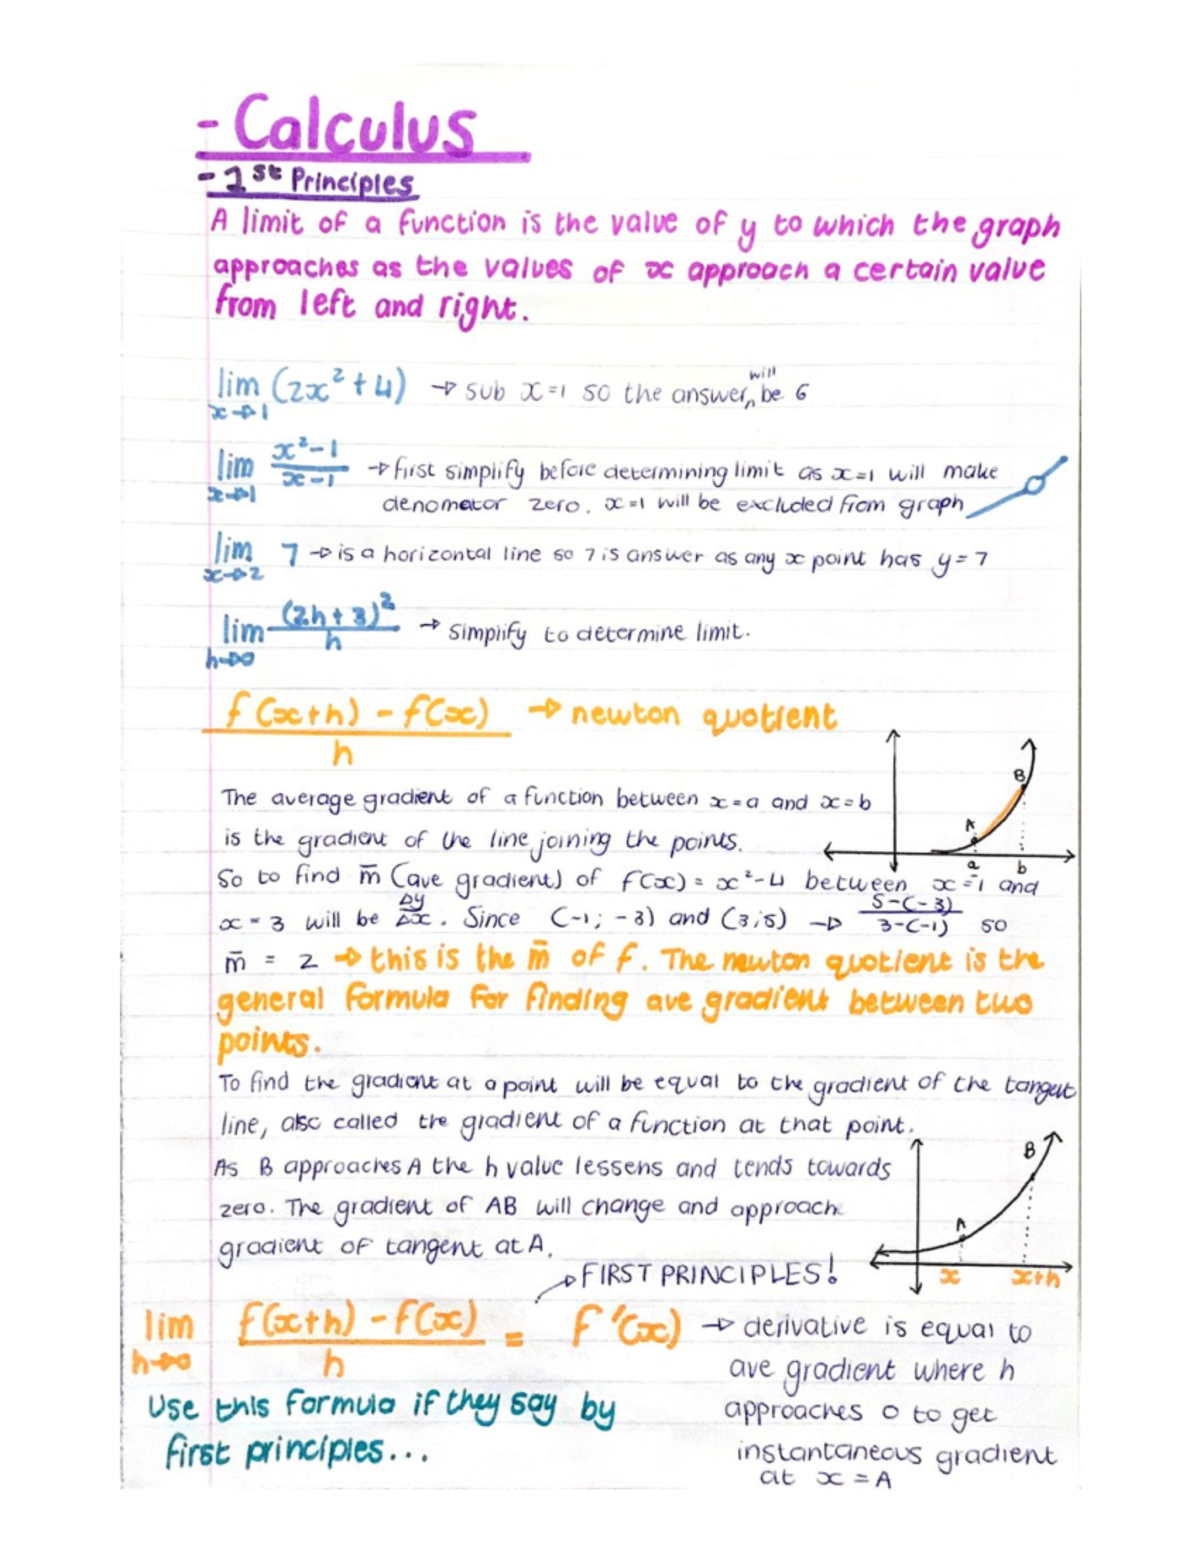 - Calculus
- 1st Principles
A limit of a function is the value of y to which the graph
approaches as the values of x approach a certain value
from left and right.
lim (2x² + 4) → sub x=1 so the answer will be 6
x→1
lim x²-1 / x-1 → first simplify before determining limit as x=1 will make
x→1 denometor zero. x=1 will be excluded from graph
lim 7 → is a horizontal line so 7 is answer as any x point has y=7
x→2
lim (2h+3)² / h → simplify to determine limit.
h→0
f(x+h) - f(x) / h → newton quotient
The average gradient of a function between x=a and x=b
is the gradient of the line joining the points.
So to find m̄ (ave gradient) of f(x) = x²-4 between x=-1 and
x=3 will be Δy/Δx. Since (-1; -3) and (3;5) → 5-(-3) / 3-(-1) so
m̄ = 2 → this is the m̄ of f. The newton quotient is the
general formula for finding ave gradient between two
points.
A B
a b
To find the gradient at a point will be equal to the gradient of the tangent
line, also called the gradient of a function at that point.
As B approaches A the h value lessens and tends towards
zero. The gradient of AB will change and approach
gradient of tangent at A.
A B
x x+h
→ FIRST PRINCIPLES!
lim f(x+h) - f(x) / h = f'(x) → derivative is equal to
h→0
ave gradient where h
approaches 0 to get
instantaneous gradient
at x = A
Use this formula if they say by
first principles...